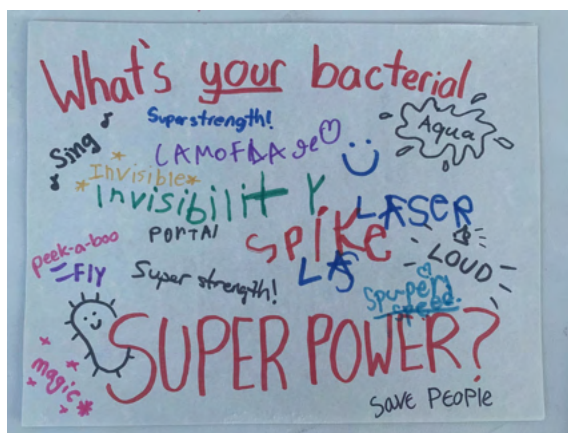 What's your bacterial
Superstrength!
Aqua
Sing
CAMOFLAge
*Invisible*
Invisibility
LASER
PORTAl
SPIKE
peek-a-boo
LOUD
FLY
Super strength!
LAS
speed.
magic
SUPER POWER?
SAVE PEOPLE